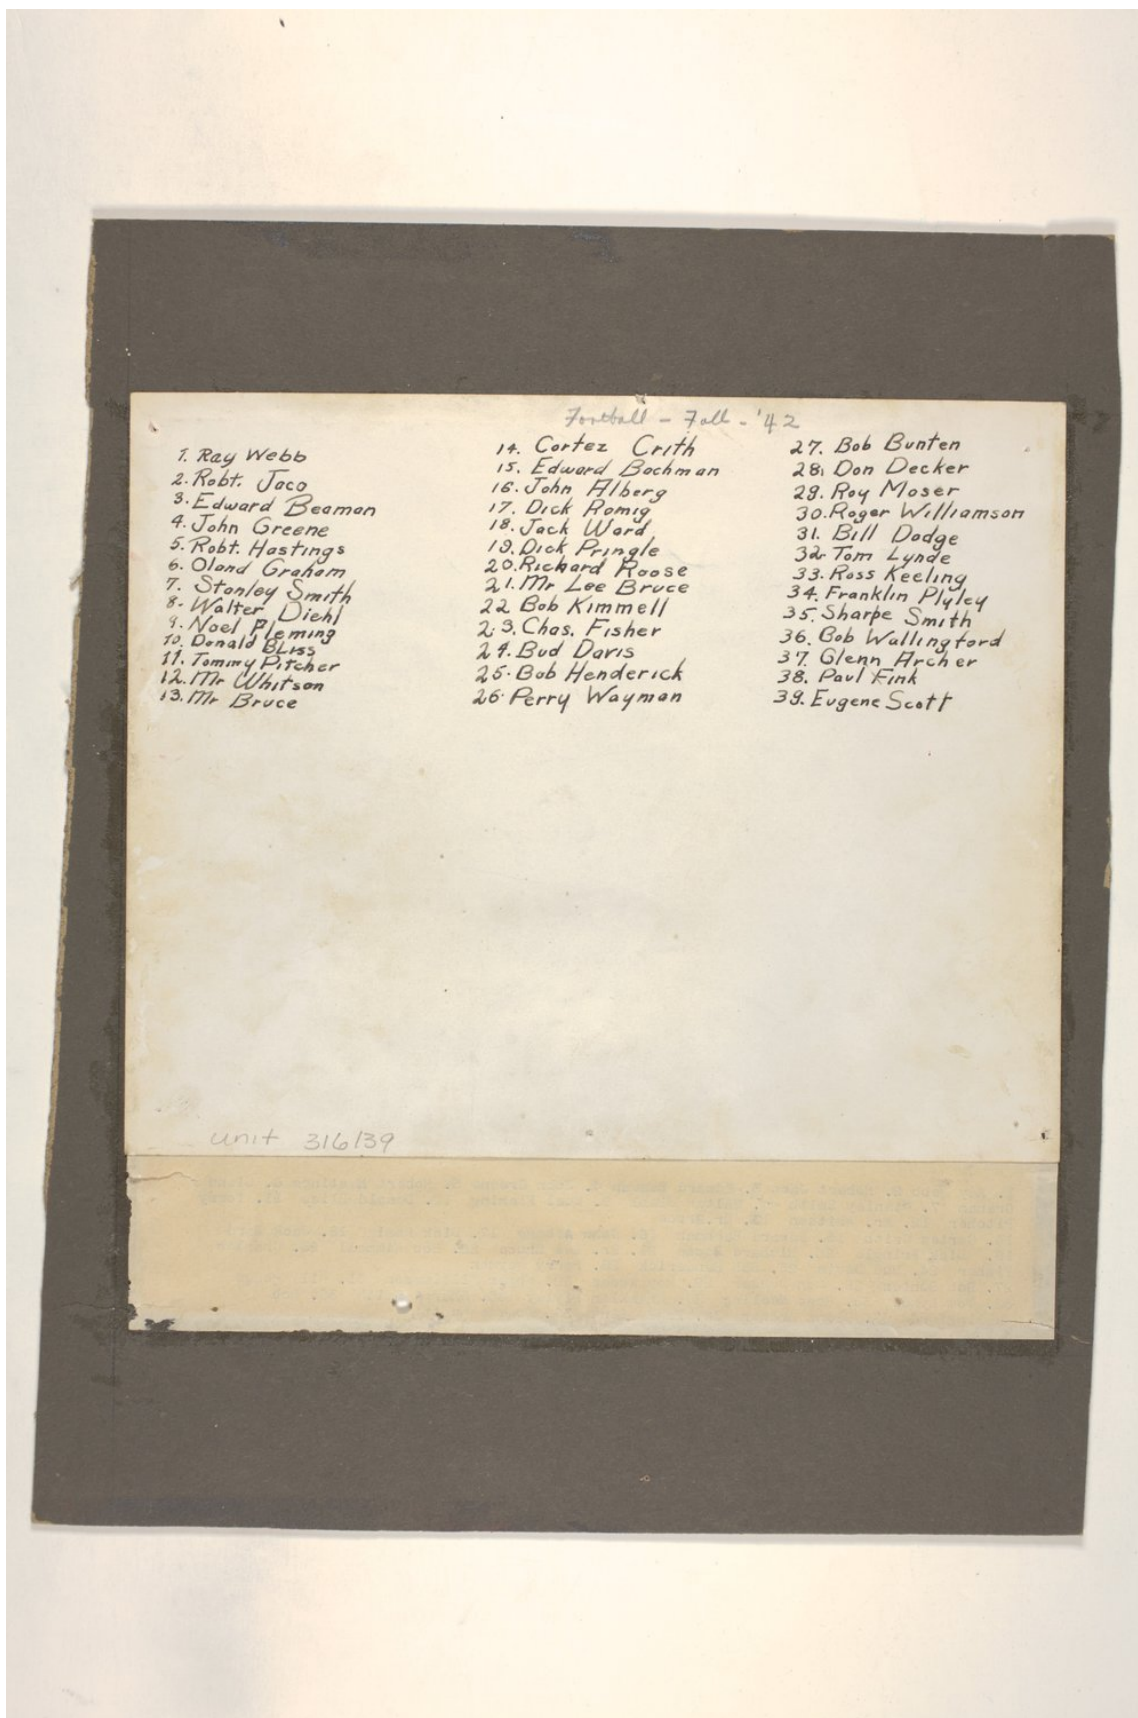 Football - Fall - '42
1. Ray Webb
2. Robt. Jaco
3. Edward Beaman
4. John Greene
5. Robt. Hastings
6. Oland Graham
7. Stanley Smith
8. Walter Diehl
9. Noel Pleming
10. Donald Bliss
11. Tommy Pitcher
12. Mr Whitson
13. Mr Bruce
14. Cortez Crith
15. Edward Bachman
16. John Alberg
17. Dick Romig
18. Jack Ward
19. Dick Pringle
20. Richard Roose
21. Mr Lee Bruce
22 Bob Kimmell
23. Chas. Fisher
24. Bud Davis
25. Bob Henderick
26. Perry Wayman
27. Bob Bunten
28. Don Decker
29. Roy Moser
30. Roger Williamson
31. Bill Dodge
32. Tom Lynde
33. Ross Keeling
34. Franklin Plyley
35. Sharpe Smith
36. Bob Wallingford
37. Glenn Archer
38. Paul Fink
39. Eugene Scott
unit 316/39